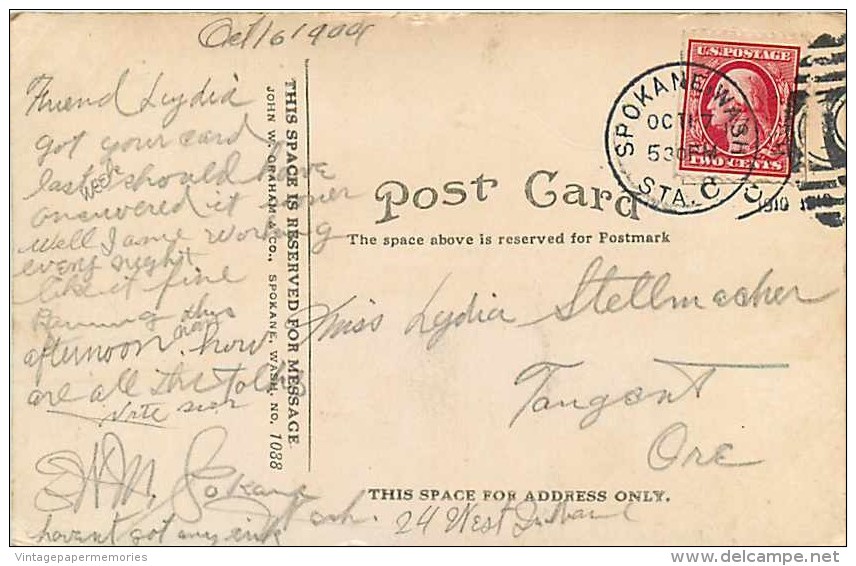 Oct 16 1909
Friend Lydia
got your card
last week should have
answered it sooner
Well I am working
every night
like it fine
Raining this
afternoon. how
are all the folks
Write soon
Spokane
Wash.
havent got any ink
24 West
THIS SPACE IS RESERVED FOR MESSAGE
JOHN W. GRAHAM & CO., SPOKANE, WASH. NO. 1088
U.S. POSTAGE
TWO CENTS
SPOKANE, WASH.
OCT 17
530 PM
STA. 8
1910
Post Card
The space above is reserved for Postmark
Miss Lydia Stellmacher
Tangent
Ore
THIS SPACE FOR ADDRESS ONLY.
Vintagepapermemories
delcampe.net